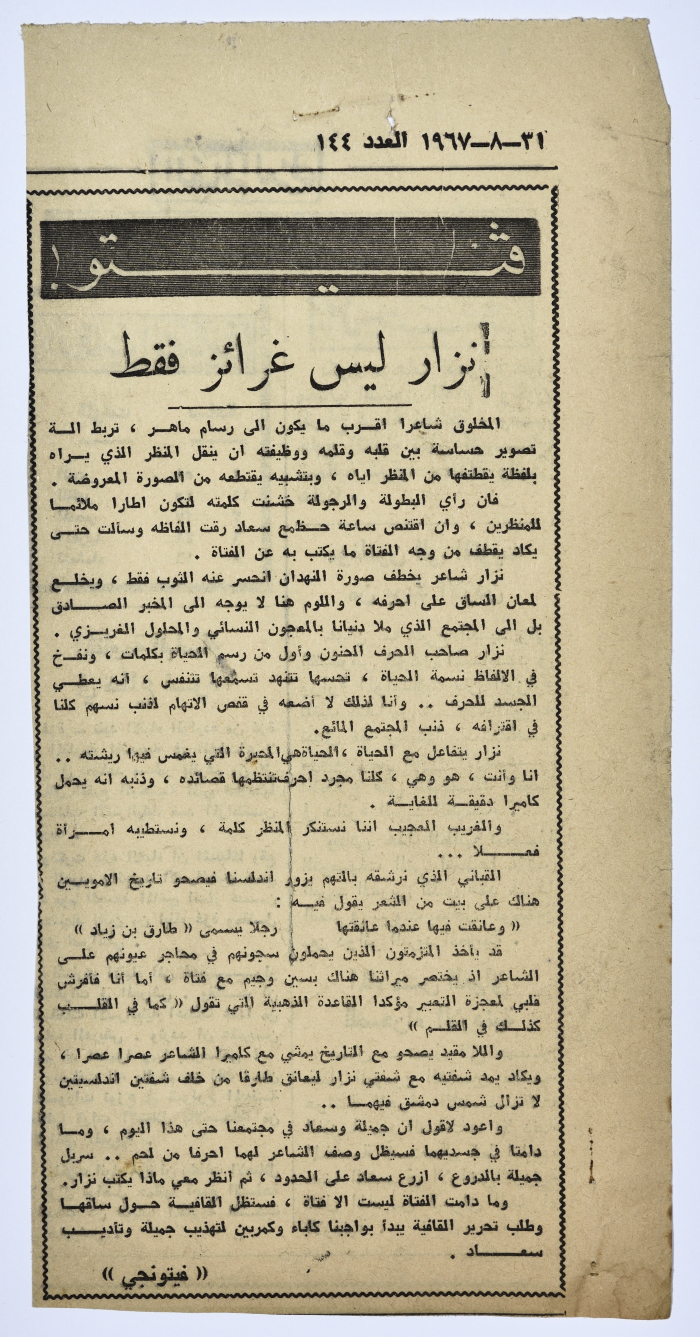 ٣١-٨-١٩٦٧ العدد ١٤٤
ڤيتو !
نزار ليس غرائز فقط
المخلوق شاعرا اقرب ما يكون الى رسام ماهر ، تربط الة
تصوير حساسة بين قلبه وقلمه ووظيفته ان ينقل المنظر الذي يراه
بلفظة يقطفها من المنظر اياه ، وبتشبيه يقتطعه من الصورة المعروضة .
فان رأي البطولة والرجولة خشنت كلمته لتكون اطارا ملائما
للمنظرين ، وان اقتنص ساعة حظ مع سعاد رقت الفاظه وسألت حتى
يكاد يقطف من وجه الفتاة ما يكتب به عن الفتاة .
نزار شاعر يخطف صورة النهدان انحسر عنه الثوب فقط ، ويخلع
لمعان الساق على احرفه ، واللوم هنا لا يوجه الى المخبر الصادق
بل الى المجتمع الذي ملا دنيانا بالمعجون النسائي والمحلول الغريزي .
نزار صاحب الحرف الحنون وأول من رسم الحياة بكلمات ، ونفخ
في الالفاظ نسمة الحياة ، تحسها تتنهد تسمعها تتنفس ، أنه يعطي
الجسد للحرف .. وأنا لذلك لا أضعه في قفص الاتهام لذنب نسهم كلنا
في اقترافه ، ذنب المجتمع المائع.
نزار يتفاعل مع الحياة ، الحياة هي المحبرة التي يغمس فيها ريشته ..
انا وأنت ، هو وهي ، كلنا مجرد احرف تنتظمها قصائده ، وذنبه انه يحمل
كاميرا دقيقة للغاية .
والغريب العجيب اننا نستنكر المنظر كلمة ، ونستطيبه امرأة
فعلا ...
القباني الذي نرشقه بالتهم يزور اندلسنا فيصحو تاريخ الامويين
هناك على بيت من الشعر يقول فيه :
« وعانقت فيها عندما عانقتها رجلا يسمى « طارق بن زياد »
قد يأخذ المتزمتون الذين يحملون سجونهم في محاجر عيونهم على
الشاعر اذ يختصر ميراثنا هناك بسين وجيم مع فتاة ، أما أنا فأفرش
قلبي لمعجزة التعبير مؤكدا القاعدة الذهبية التي تقول « كما في القلب
كذلك في القلم »
والملا مقيد يصحو مع التاريخ يمشي مع كاميرا الشاعر عصرا عصرا ،
ويكاد يمد شفتيه مع شفتي نزار ليعانق طارقا من خلف شفتين اندلسيتين
لا تزال شمس دمشق فيهما ..
واعود لاقول ان جميلة وسعاد في مجتمعنا حتى هذا اليوم ، وما
دامتا في جسديهما فسيظل وصف الشاعر لهما احرفا من لحم .. سربل
جميلة بالدروع ، ازرع سعاد على الحدود ، ثم أنظر معي ماذا يكتب نزار.
وما دامت الفتاة ليست الا فتاة ، فستظل القافية حول ساقها
وطلب تحرير القافية يبدأ بواجبنا كاباء وكمربين لتهذيب جميلة وتأديب
سعاد .
« فيتونجي »